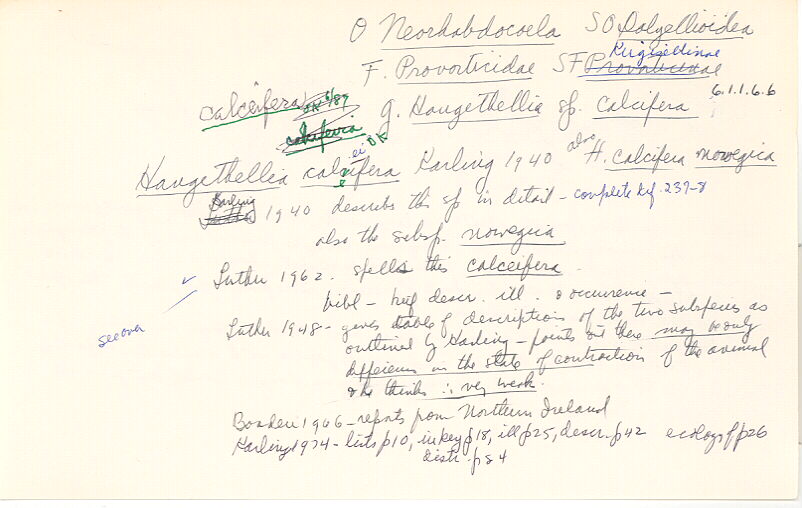 O Neorhabdocoela SO Dalyellioidea
F. Provorticidae SF Provorticinae Kirgisellinae
6.1.1.6.6
calceifera OK 6/89 g. Haugethellia sp. calcifera
calceifera OK
Haugethellia calcifera ei Karling 1940 also H. calcifera norvegica
Luther Karling 1940 describes this sp in detail - complete ref. 237-8
also the subsp. norvegica
Luther 1962. spells this calceifera.
bibl - brief descr. ill. & occurence -
see over
Luther 1948 - gives table of descriptions of the two subspecies as
outlined by Karling - points out these may be only
differences in the state of contraction of the animal
& he thinks ∴ very weak.
Boaden 1966 - reports from Northern Ireland
Karling 1974 - lists p10, in key p18, ill p25, descr. p42 ecology p26
distr - p84